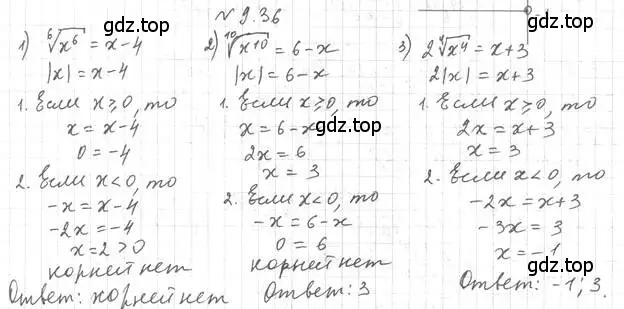 № 9.36
1) ⁶√x⁶ = x - 4
|x| = x - 4
1. Если x ≥ 0, то
x = x - 4
0 = -4
2. Если x < 0, то
-x = x - 4
-2x = -4
x = 2 > 0
корней нет
Ответ: корней нет
2) ¹⁰√x¹⁰ = 6 - x
|x| = 6 - x
1. Если x ≥ 0, то
x = 6 - x
2x = 6
x = 3
2. Если x < 0, то
-x = 6 - x
0 = 6
корней нет
Ответ: 3
3) 2⁴√x⁴ = x + 3
2|x| = x + 3
1. Если x ≥ 0, то
2x = x + 3
x = 3
2. Если x < 0, то
-2x = x + 3
-3x = 3
x = -1
Ответ: -1; 3.
gdz.top
gdz.top
gdz.top
gdz.top
gdz.top